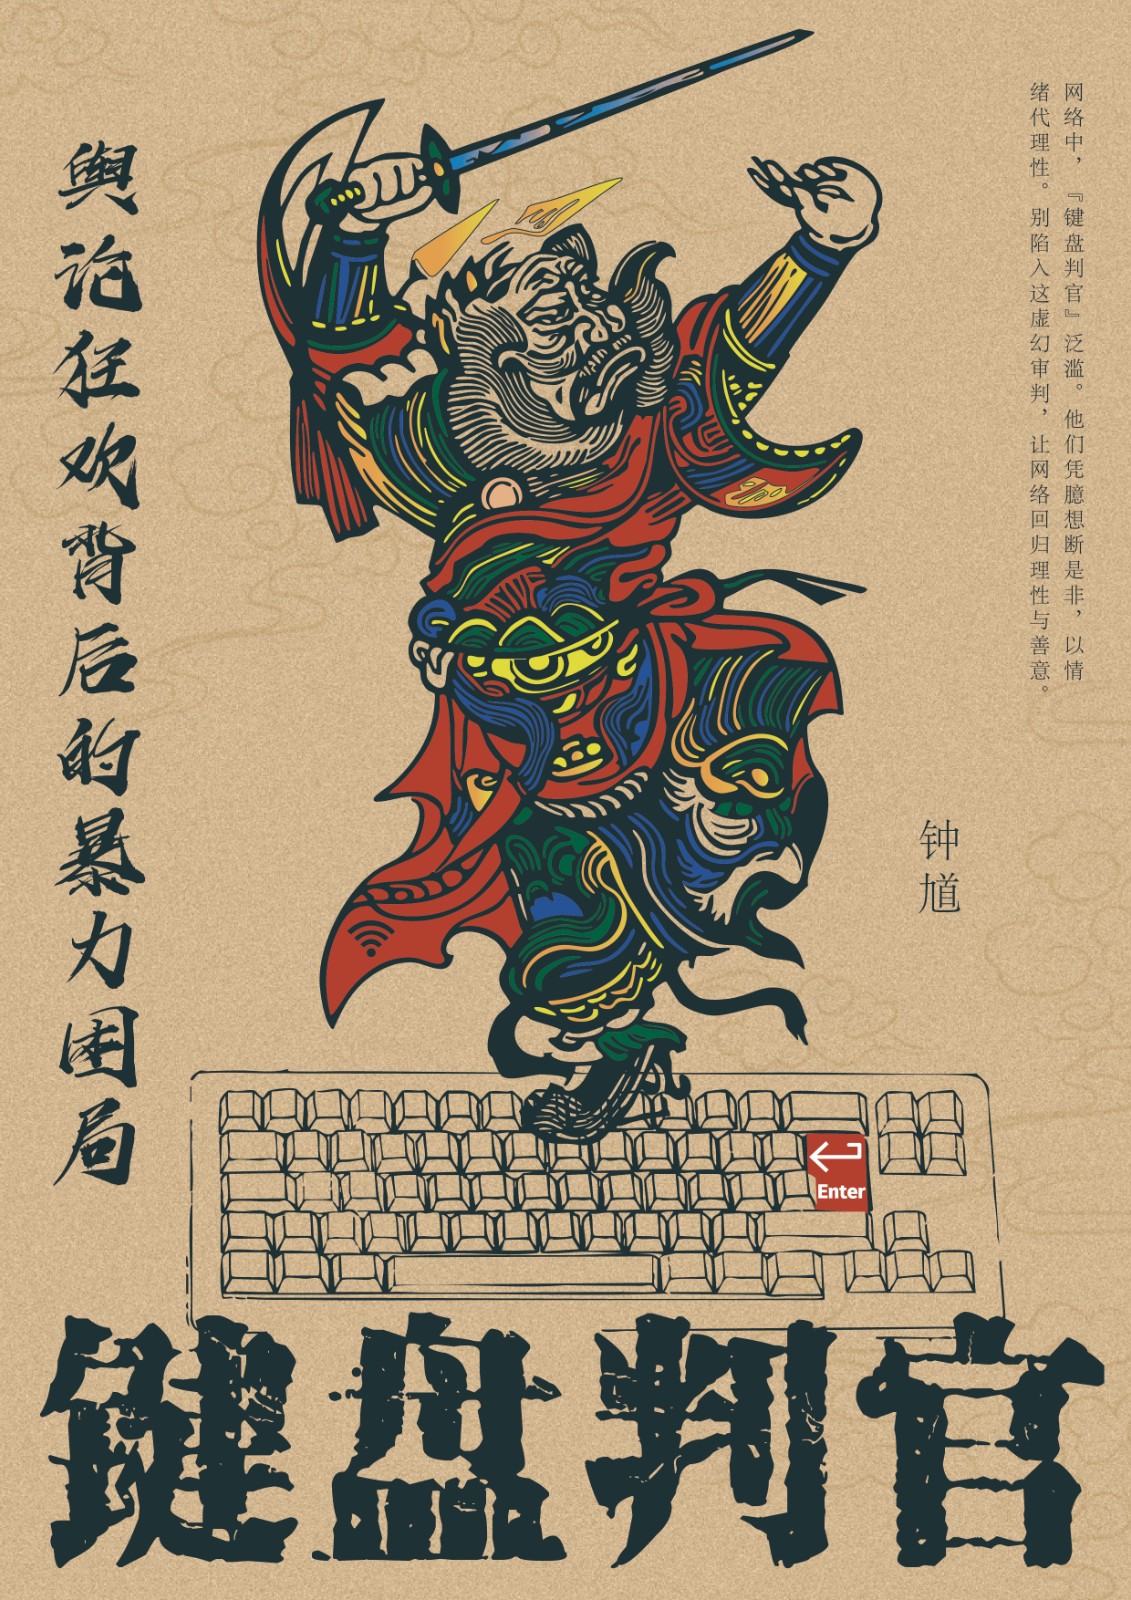 网络中，『键盘判官』泛滥。他们凭臆想断是非，以情
绪代理性。别陷入这虚幻审判，让网络回归理性与善意。
舆论狂欢背后的暴力困局
钟馗
Enter
键盘判官